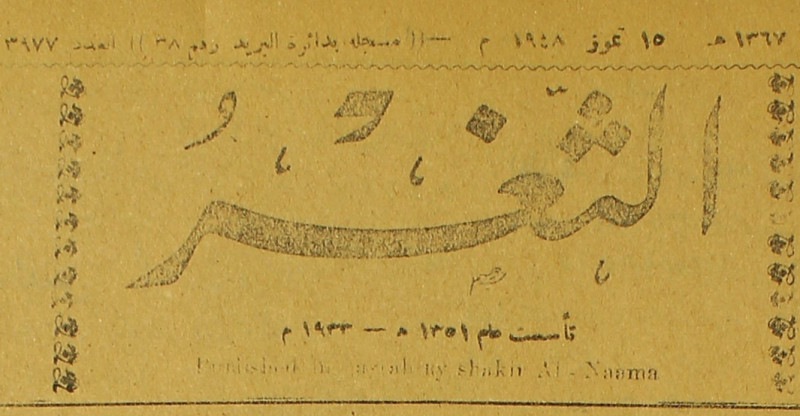 ١٣٦٧ هـ ١٥ تموز ١٩٤٨ م —(( مسجله بدائرة البريد رقم ٣٨ )) العدد ٣٩٧٧
الثغر
تأسست عام ١٣٥١ هـ — ١٩٣٣ م
Published in Basrah by shakir Al - Naama